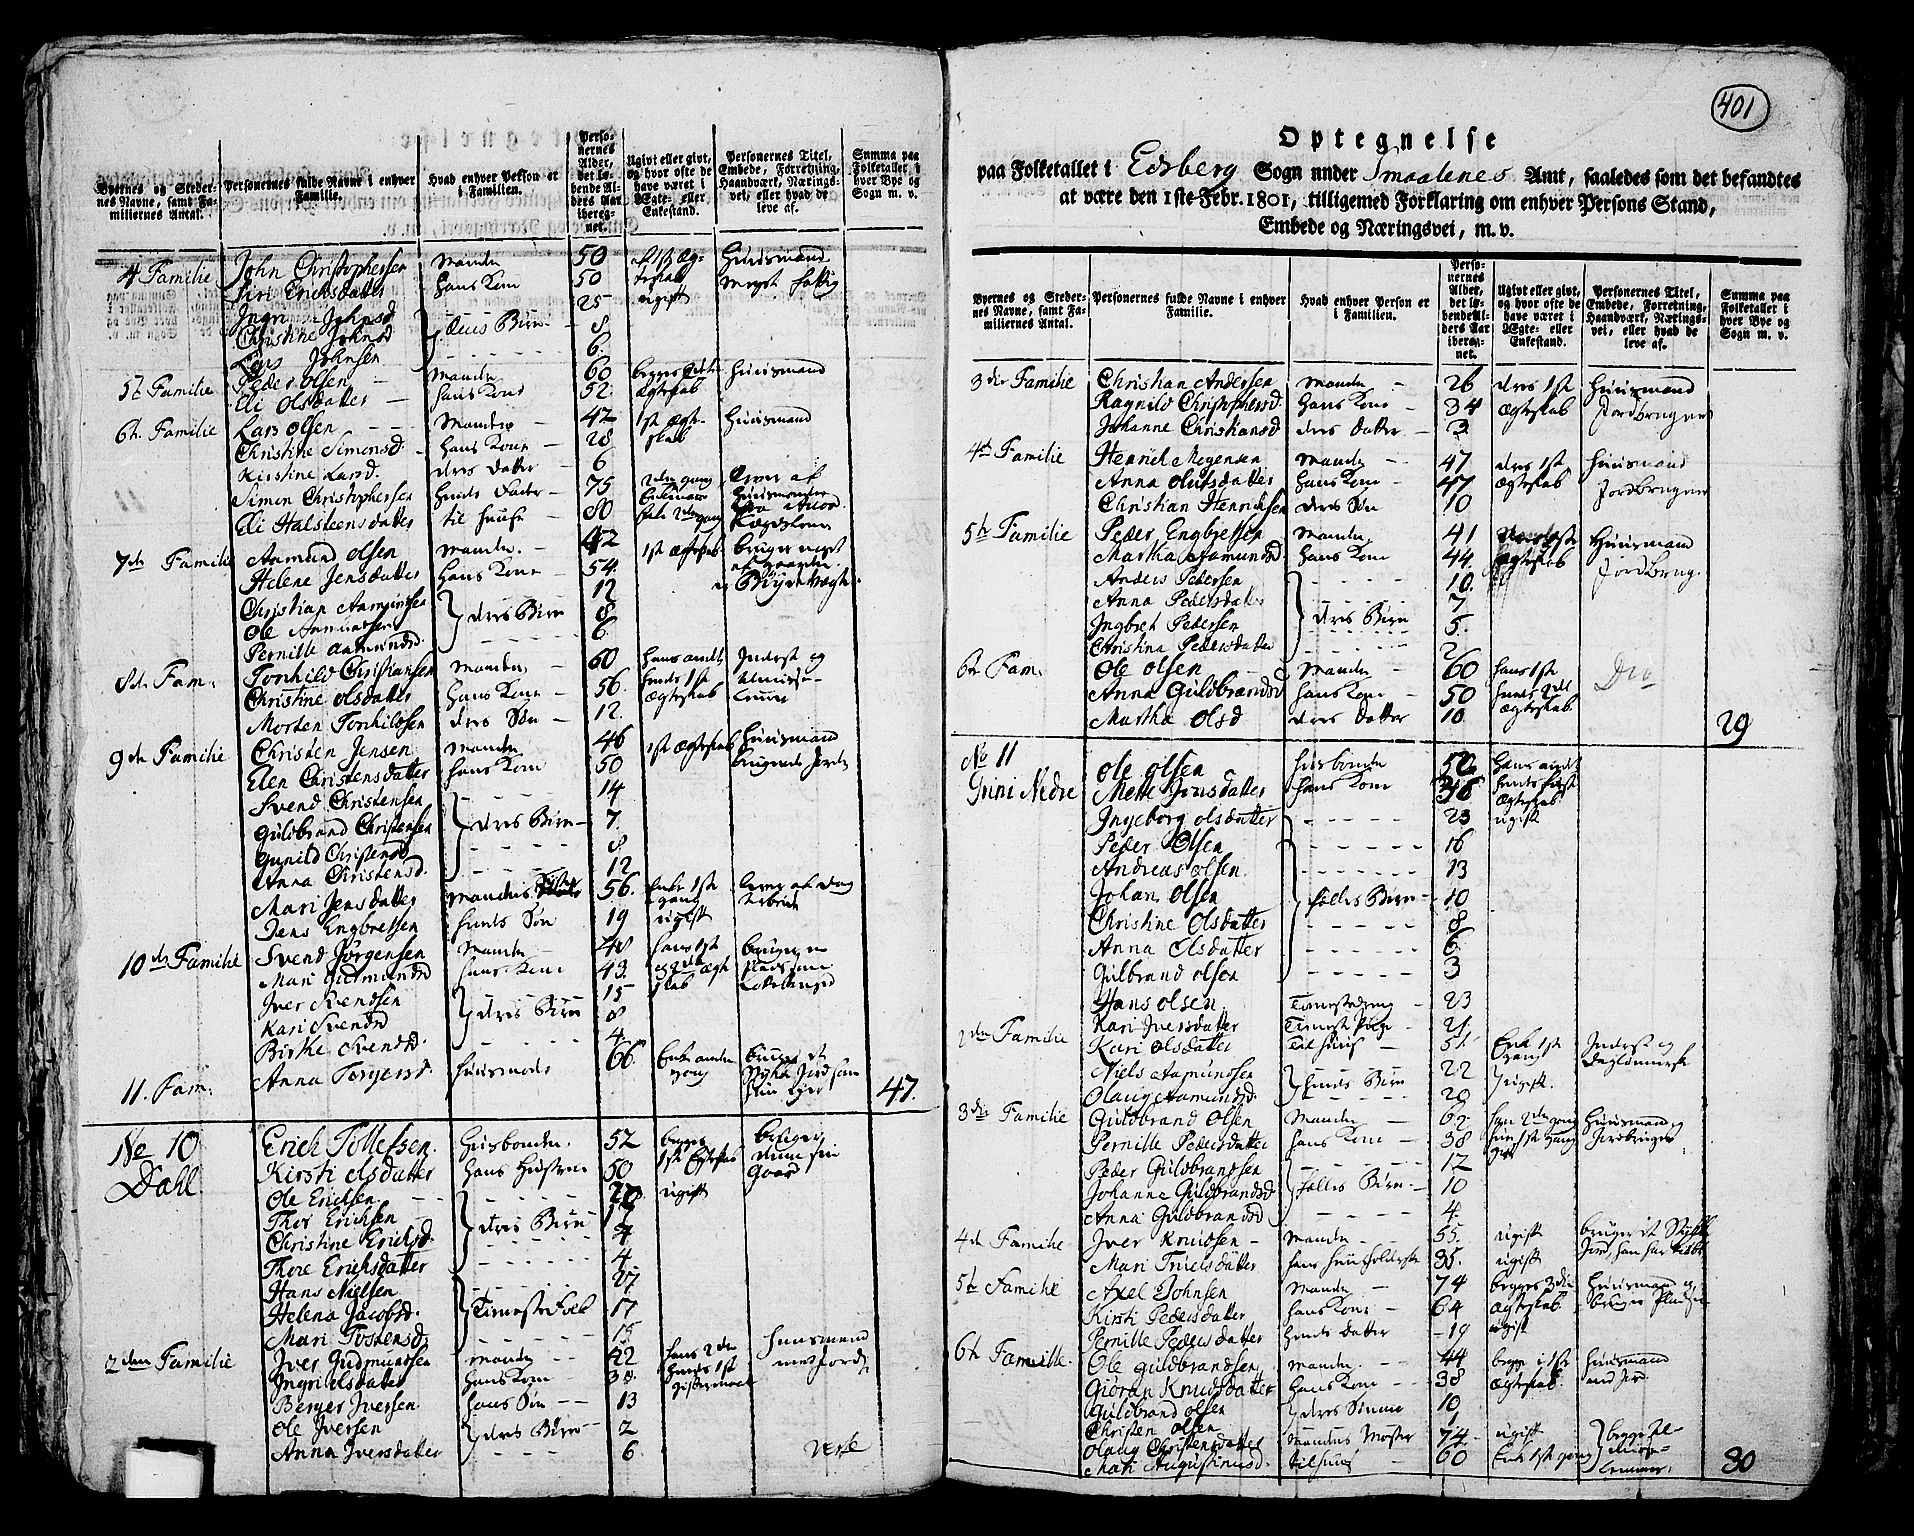 Byernes og Stedernes Navne, samt Familiernes Antal. | Personernes fulde Navne i enhver Familie. | Hvad enhver Person er i Familien. | Personernes Alder, det løbende Alders Aar iberegnet. | Ugivt eller givt, og hvor ofte de have været i Ægte- eller Enkestand. | Personernes Titel, Embede, Forretning, Haandværk, Næringsvei, eller hvad de leve af. | Summa paa Folketallet i hver Bye og Sogn m. v.
4 Familie John Christophersen Manden 50 Huusmand
Siri Erichsdatter Hans Kone 50 meget fattig
Ingri Johnsd 25 ugift
Christine Johnsd deres Børn 8
Lars Johnsen 6
5t Familie Peder Olsen Manden 60 Huusmand
Eli Olsdatter Hans Kone 52 Ægteskab
6t. Familie Lars Olsen Manden 42 1st Ægte- Huusmand
Christine Simonsd Hans Kone 28 skab
Kirstine Larsd deres Datter 6
Simon Christophersen hendes Fader 75 2den gang
Eli Halsteensdatter til Huuse 80
7de Familie Aamund Olsen Manden 42 1st Ægteskab bruger noget
Helene Jensdatter Hans Kone 54 af gaarden
Christian Aamundsen 12
Ole Aamundsen deres Børn 8
Pernille Aamundsd. 6
8de Fam. Tonhild Christiansen Manden 60 hans andet Inderst og
Christine Olsdatter Hans Kone 56 hendes 1st Almisse-
Morten Tonhildsen deres Søn 12 Ægteskab Lemmer
9de Familie Christen Jensen Manden 46 1st Ægteskab Huusmand
Elen Christensdatter Hans Kone 50 brugende Jord
Svend Christensen 14
Guldbrand Christensen deres Børn 7
Gunild Christensd 8
Anna Christensd. 12
Mari Jensdatter Mandens 56. Enke 1st lever af Dag
Jens Engbretsen hendes Søn 19 gang ugift Arbeide
10de Familie Svend Jørgensen Manden 48 hans 1st bruger en
Mari Gudmundsd Hans Kone 43 og 2det Ægteskab
Iver Svendsen 15
Kari Svendsd deres Børn 8
Birke Svendsd. 4
11. Fam. Anna Torgersd Huusmoder 66 Enke anden gang 47.
No 10 Dahl Erich Tollefsen Husbonden 52 begges bruger
Kirsti Olsdatter Hans Hustrue 50 1st Egteskab denne sin
Ole Erichsen ugift Gaard
Thor Erichsen
Christine Erichsd. deres Børn 7
Thore Erichsdatter 4
Hans Nielsen 27
Helena Jacobsd. Tieneste Folk 17
Mari Tostensd 15
2den Familie Iver Gudmundsen Manden 42 hans 2den Huusmand
Ingri Olsdatter Hans Kone 38 hendes 1st med Jord
Berger Iversen hans Søn 13
Ole Iversen deres Børn 2
Anna Iversdatter 6
401
Optegnelse
paa Folketallet i Edsberg Sogn under Smaalenes Amt, saaledes som det befandtes
at være den 1ste Febr. 1801, tilligemed Forklaring om enhver Persons Stand,
Embede og Næringsvei, m. v.
Byernes og Stedernes Navne, samt Familiernes Antal. | Personernes fulde Navne i enhver Familie. | Hvad enhver Person er i Familien. | Personernes Alder, det løbende Alders Aar iberegnet. | Ugivt eller givt, og hvor ofte de have været i Ægte- eller Enkestand. | Personernes Titel, Embede, Forretning, Haandværk, Næringsvei, eller hvad de leve af. | Summa paa Folketallet i hver Bye og Sogn m. v.
3die Familie Christian Andersen Manden 26 deres 1st Huusmand
Ragnild Christophersd Hans Kone 34 Ægteskab Jordbruger
Johanne Christiansd deres Datter 3
4de Familie Henrich Mogensen Manden 47 deres 1st Huusmand
Anna Olufsdatter Hans Kone 47 Ægteskab Jordbruger
Christian Henriksen deres Søn 10
5te Familie Peder Engbretsen Manden 41 Huusmand
Martha Aamundsd Hans Kone 44 Ægteskab Jordbrug.
Anders Pedersen 10
Anna Pedersdatter 7
Ingbret Pedersen deres Børn 5
Christina Pedersdatter 2
6te Fam. Ole Olsen Manden 60 hans 1st Dio
Anna Guldbrandsd Hans Kone 50 hendes 2det
Martha Olsd deres Datter 10 Ægteskab 29
No 11 Ole Olsen Husbonde 52 hans andet
Grini Nedre Mette Jensdatter Hans Kone hendes først Ægteskab
Ingeborg Olsdatter 23 ugift
Peder Olsen 16
Andreas Olsen 13
Johan Olsen fælles Børn 10
Christine Olsdatter 8
Anna Olsdatter 6
Gulbrand Olsen 3
Hans Olsen Tienestedreng 23
Kari Iversdatter Tieneste Pige 21
2den Familie Kari Olsdatter Til Huus 51 Enke 1st gang Inderst og
Niels Aamundsen hendes Børn 22 ugift.
Olaug Aamundsd. 20
3die Familie Guldbrand Olsen Manden 62 Huusmand
Pernille Pedersdatter Hans Kone 38 Jordbruger
Peder Guldbrandsen 12
Johanne Guldbrandsd fælles Børn 10
Anna Guldbrandsd 4
4de Familie Iver Knudsen Manden 55 ugift bruger et Stykke
Mari Truelsdatter hans Huusholderske 35. ugift
5te Familie Axel Johnsen Manden 74 begges 3die Huusmand og
Kirsti Pedersdatter Hans Kone 64 Ægteskab bruger Pladsen
Pernille Pedersdatter hendes Datter 19 ugift
6te Familie. Ole Guldbrandsen Manden 44 begge i 1st Huusmand
Giøran Knudsdatter Hans Kone 38 Ægteskab med Jord
Guldbrand Olsen deres Sønner 10
Christen Olsen 1
Olaug Christensdatter Mandens Moster 74 ugift begge Al-
Mari Augustinusd. tilhuus 60 Enke 1st gang misse Lemmer. 30